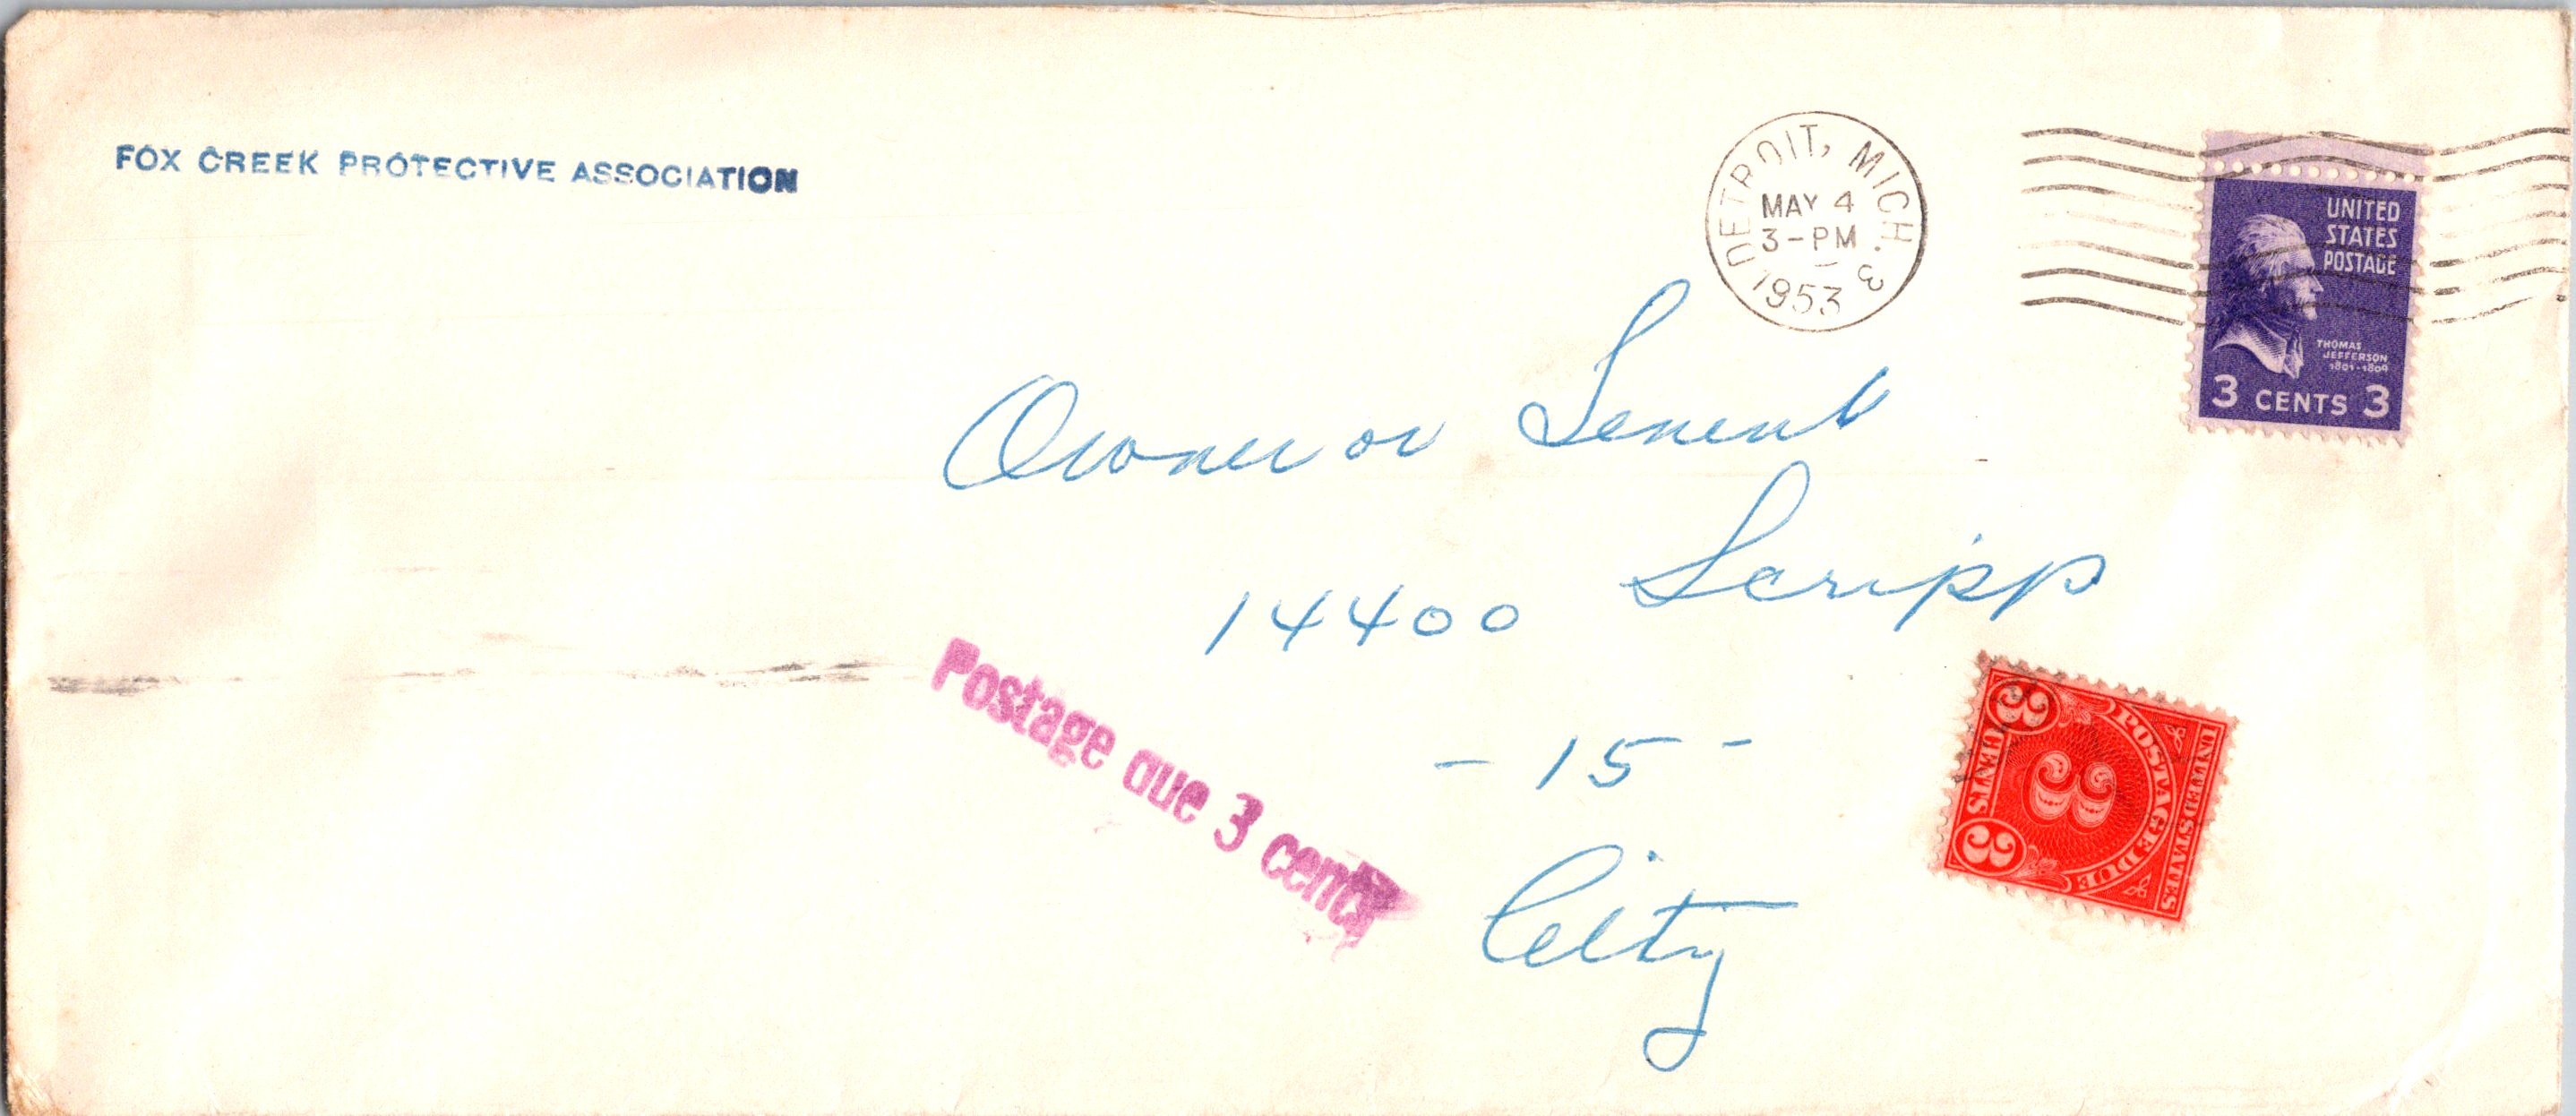 FOX CREEK PROTECTIVE ASSOCIATION
DETROIT, MICH. 3
MAY 4
3-PM
1953
UNITED
STATES
POSTAGE
THOMAS
JEFFERSON
1801-1809
3 CENTS 3
Owner or Tenent
14400 Scripp
-15-
City
Postage due 3 cents
UNITED STATES
POSTAGE DUE
3
3 CENTS 3